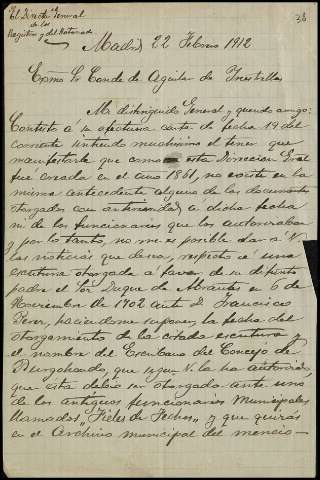 El Director General
de los
Registros y del Notariado
38
Madrid 22 Febrero 1912
Excmo Sr Conde de Aguilar de Inestrillas
Mi distinguido General y querido amigo:
Contesto á su afectuosa carta de fecha 19 del
corriente sintiendo muchísimo el tener que
manifestarle que como esta Dirección Gral
fué creada en el año 1861, no existe en la
misma antecedente alguno de los documentos
otorgados con anterioridad á dicha fecha
ni de los funcionarios que los autorizaban
y por lo tanto, no me es posible dar á V.
las noticias que desea, respecto á una
escritura otorgada á favor de su difunto
padre el Sor Duque de Abrantes en 6 de
Noviembre de 1702 ante D. Francisco
Perez, haciendome suponer, la fecha del
otorgamiento de la citada escritura y
el nombre del Escribano del Concejo de
Burgohondo, que segun V. la ha autorizado,
que esta debió ser otorgada ante uno
de los antiguos funcionarios Municipales
llamados "Fieles de Fechos" y que quizás
en el Archivo municipal del mencio-